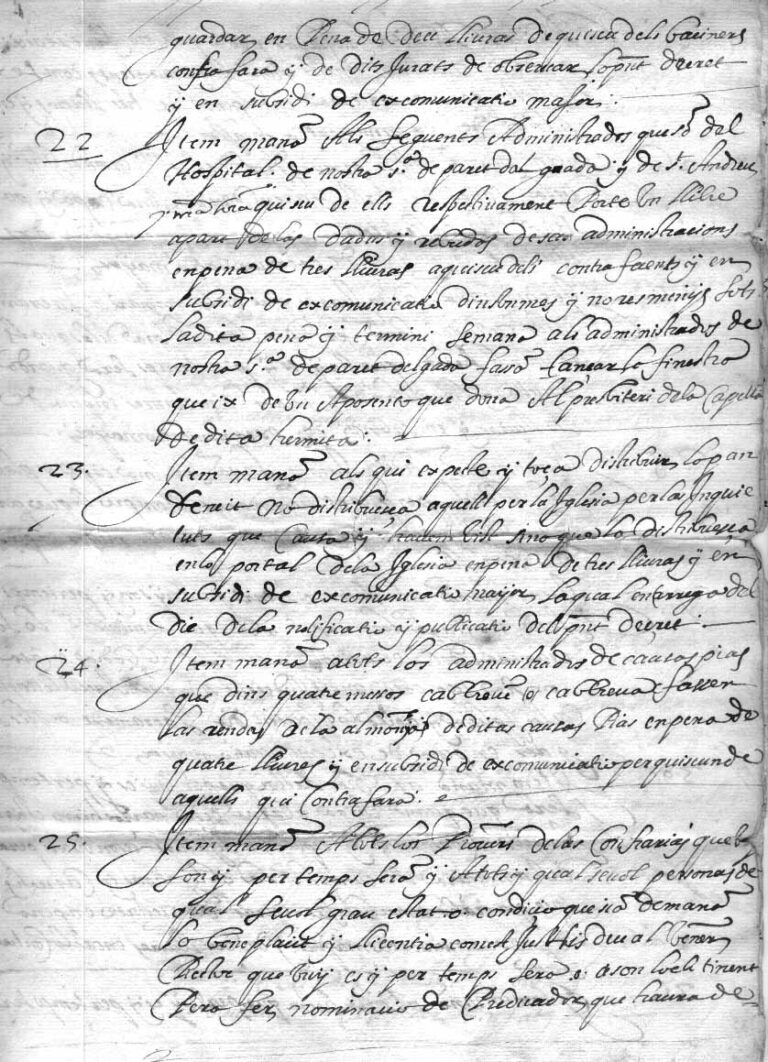 guardar en Pena de deu lliuras de quiscu dels baciners
contra fara y de dits Jurats de observar lo pnt decret
y en subsidi de excomunicatio major.
22 Item manā Als seguents Administrados ques dal
Hospital. de nostra s.ª de paret dal guada y de s. Andreu
quiscu de ells respectivament Porte un llibre
apart de los dadas y rebudas de sas administracions
en pena de tres lliuras a quiscu deli contrafaents y en
subsidi de excomunicatio y no res menys sots
la dita pena y termini als administrados de
nostra s.ª de paret delgada fasā tancar la finestra
que ix de un Aposento que dona Al presbiteri de la Capella
de dita hermita.
23. Item manā als qui expecte y toca distribuir lo pan
beneit No distribuesca aquell per la Iglesia per las Inquie
tuts que Causa y havem vist sino que lo distribuesca
en lo portal dela Iglesia en pena de tres lliuras y en
subsidi de excomunicatio major la qual del
die de la notificatio y publicatio del pnt decret.
24. Item manā a tots los administrados de causas pias
que dins quatre mesos cabrevē o cabrevar fassen
las rendas de la almoyna de ditas causas Pias en pena de
quatre lliures y en subsidi de excomunicatio per quiscun de
aquells qui Contrafara.
25. Item manā A tots los de las Confrarias que
son y per temps serā y A tots y qualsevol personas de
qual sevol grau estat o condicio que sia demanā
lo beneplacit y llicentia com es Just y es deu al Vener.
Rector que vuy es y per temps sera o a son lloch tinent
Pera fer nominacio de Predicador que haura de